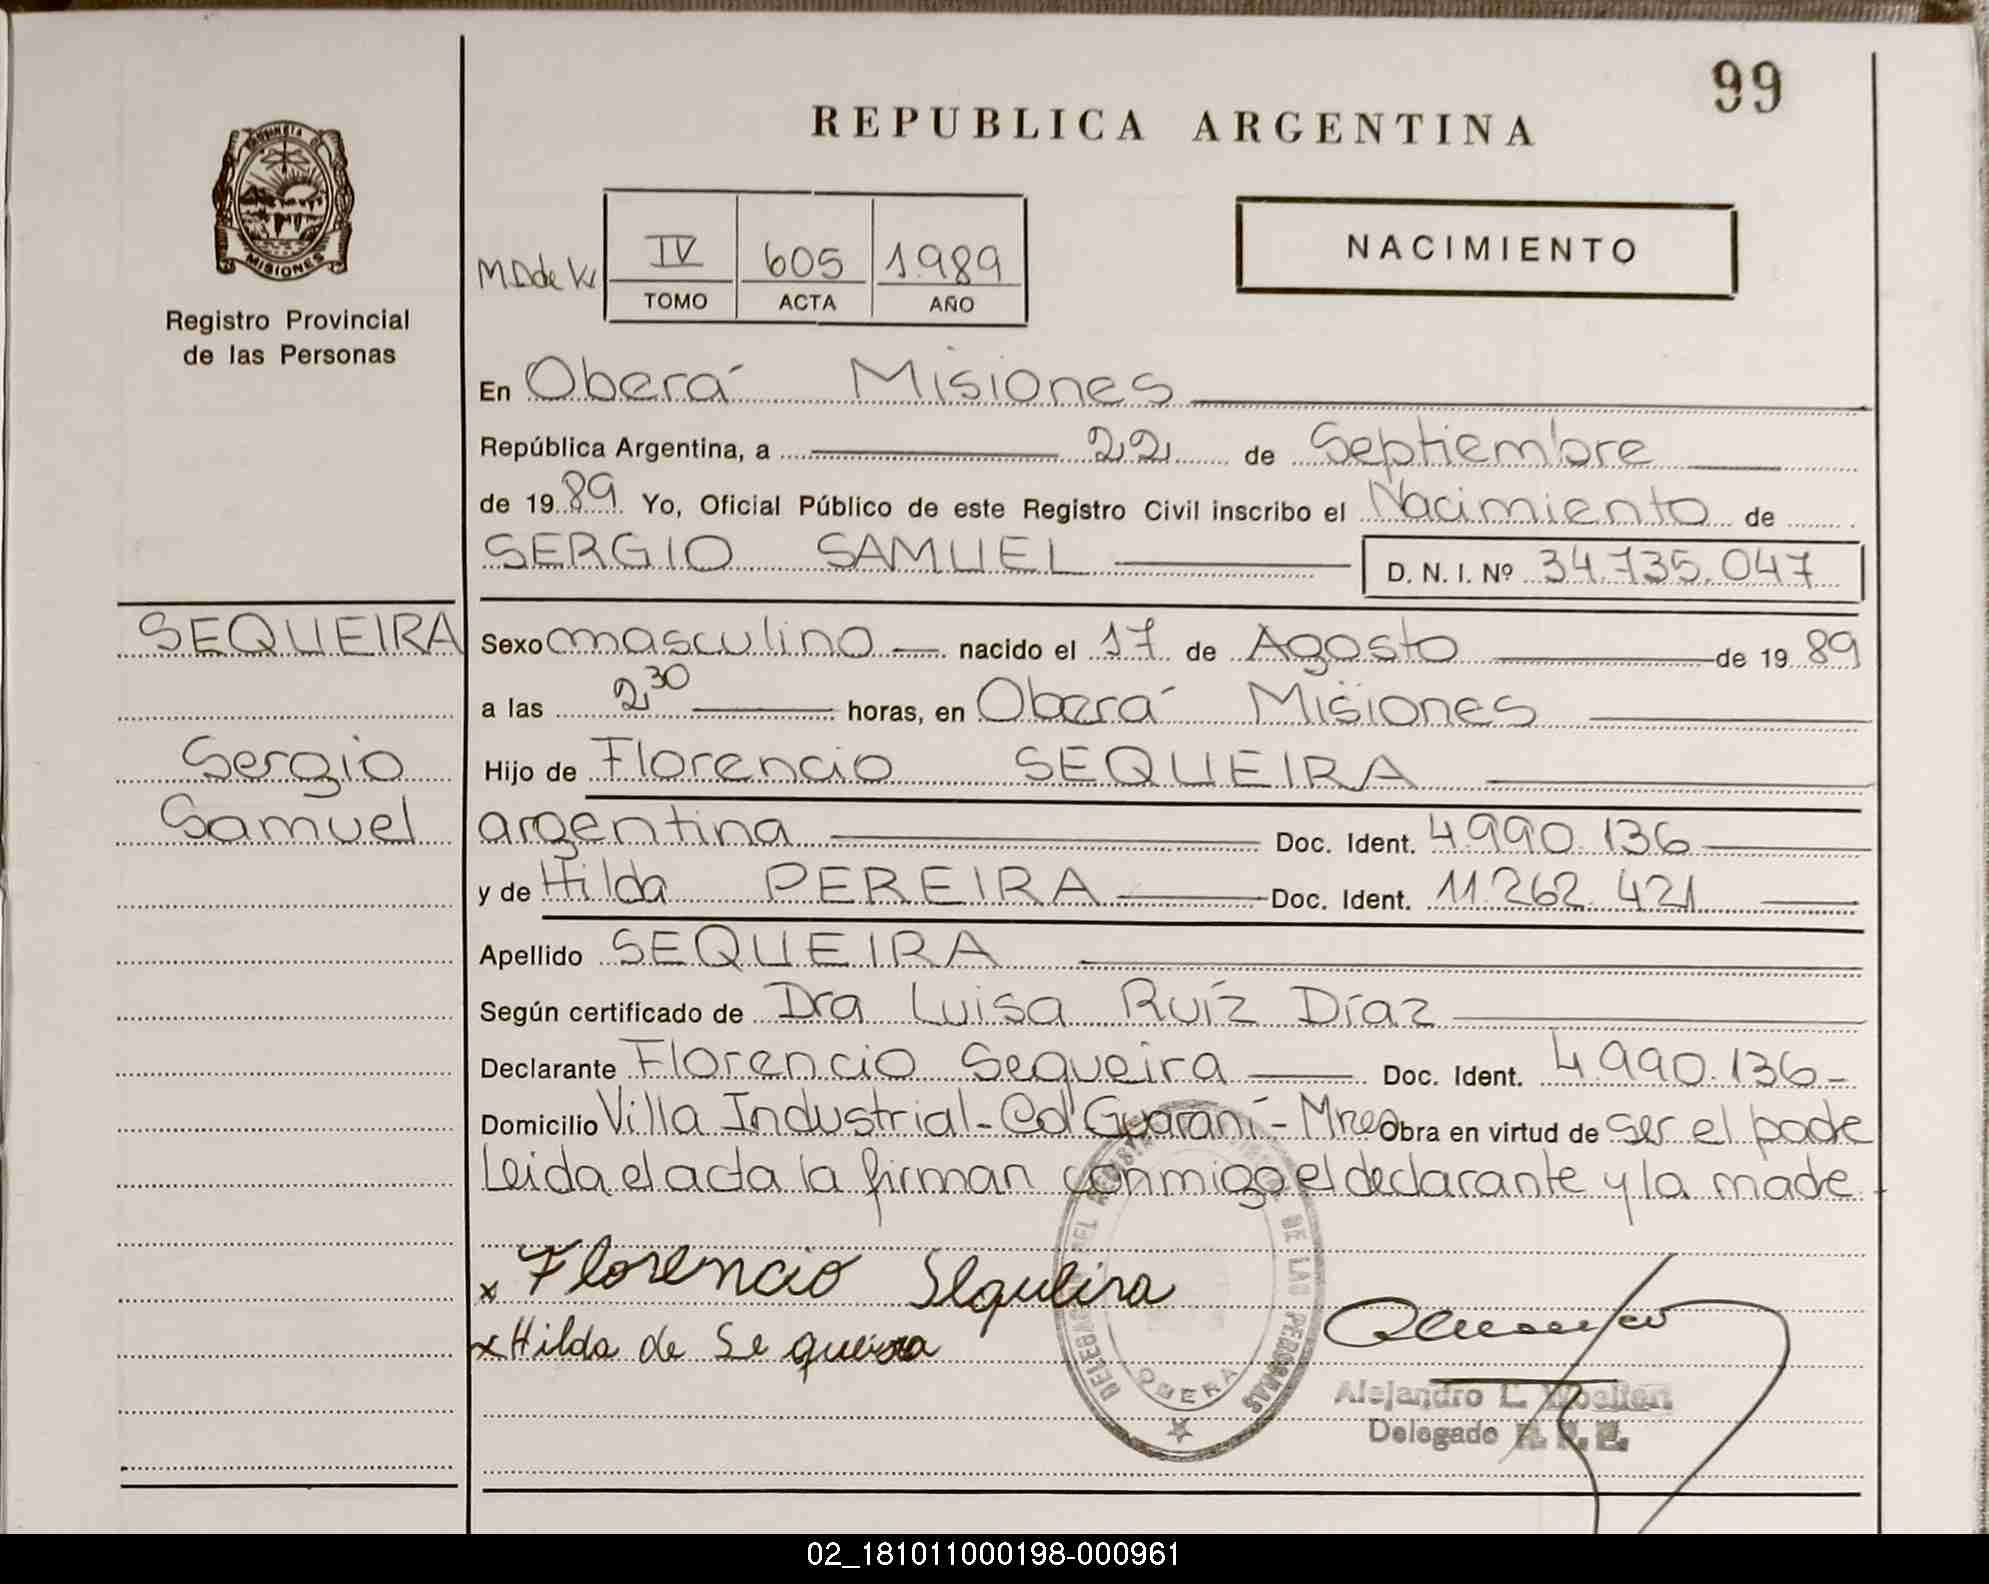 99
REPUBLICA ARGENTINA
PROVINCIA DE
MISIONES
Registro Provincial
de las Personas
NACIMIENTO
IV 605 1989
TOMO ACTA AÑO
En Oberá Misiones
República Argentina, a 22 de Septiembre
de 1989 Yo, Oficial Público de este Registro Civil inscribo el Nacimiento de
SERGIO SAMUEL D. N. I. Nº 34.735.047
SEQUEIRA
Sergio
Samuel
Sexo masculino nacido el 17 de Agosto de 1989
a las 2,30 horas, en Oberá Misiones
Hijo de Florencio SEQUEIRA
argentina Doc. Ident. 4.990.136
y de Hilda PEREIRA Doc. Ident. 11.262.421
Apellido SEQUEIRA
Según certificado de Dra Luisa Ruíz Díaz
Declarante Florencio Sequeira Doc. Ident. 4.990.136-
Domicilio Villa Industrial- Guaraní- Obra en virtud de ser el padre
Leida el acta la firman conmigo el declarante y la madre
x Florencio Sequeira
x Hilda de Sequeira
DE LAS PERSONAS
OBERA
Alejandro L.
Delegado
02_181011000198-000961